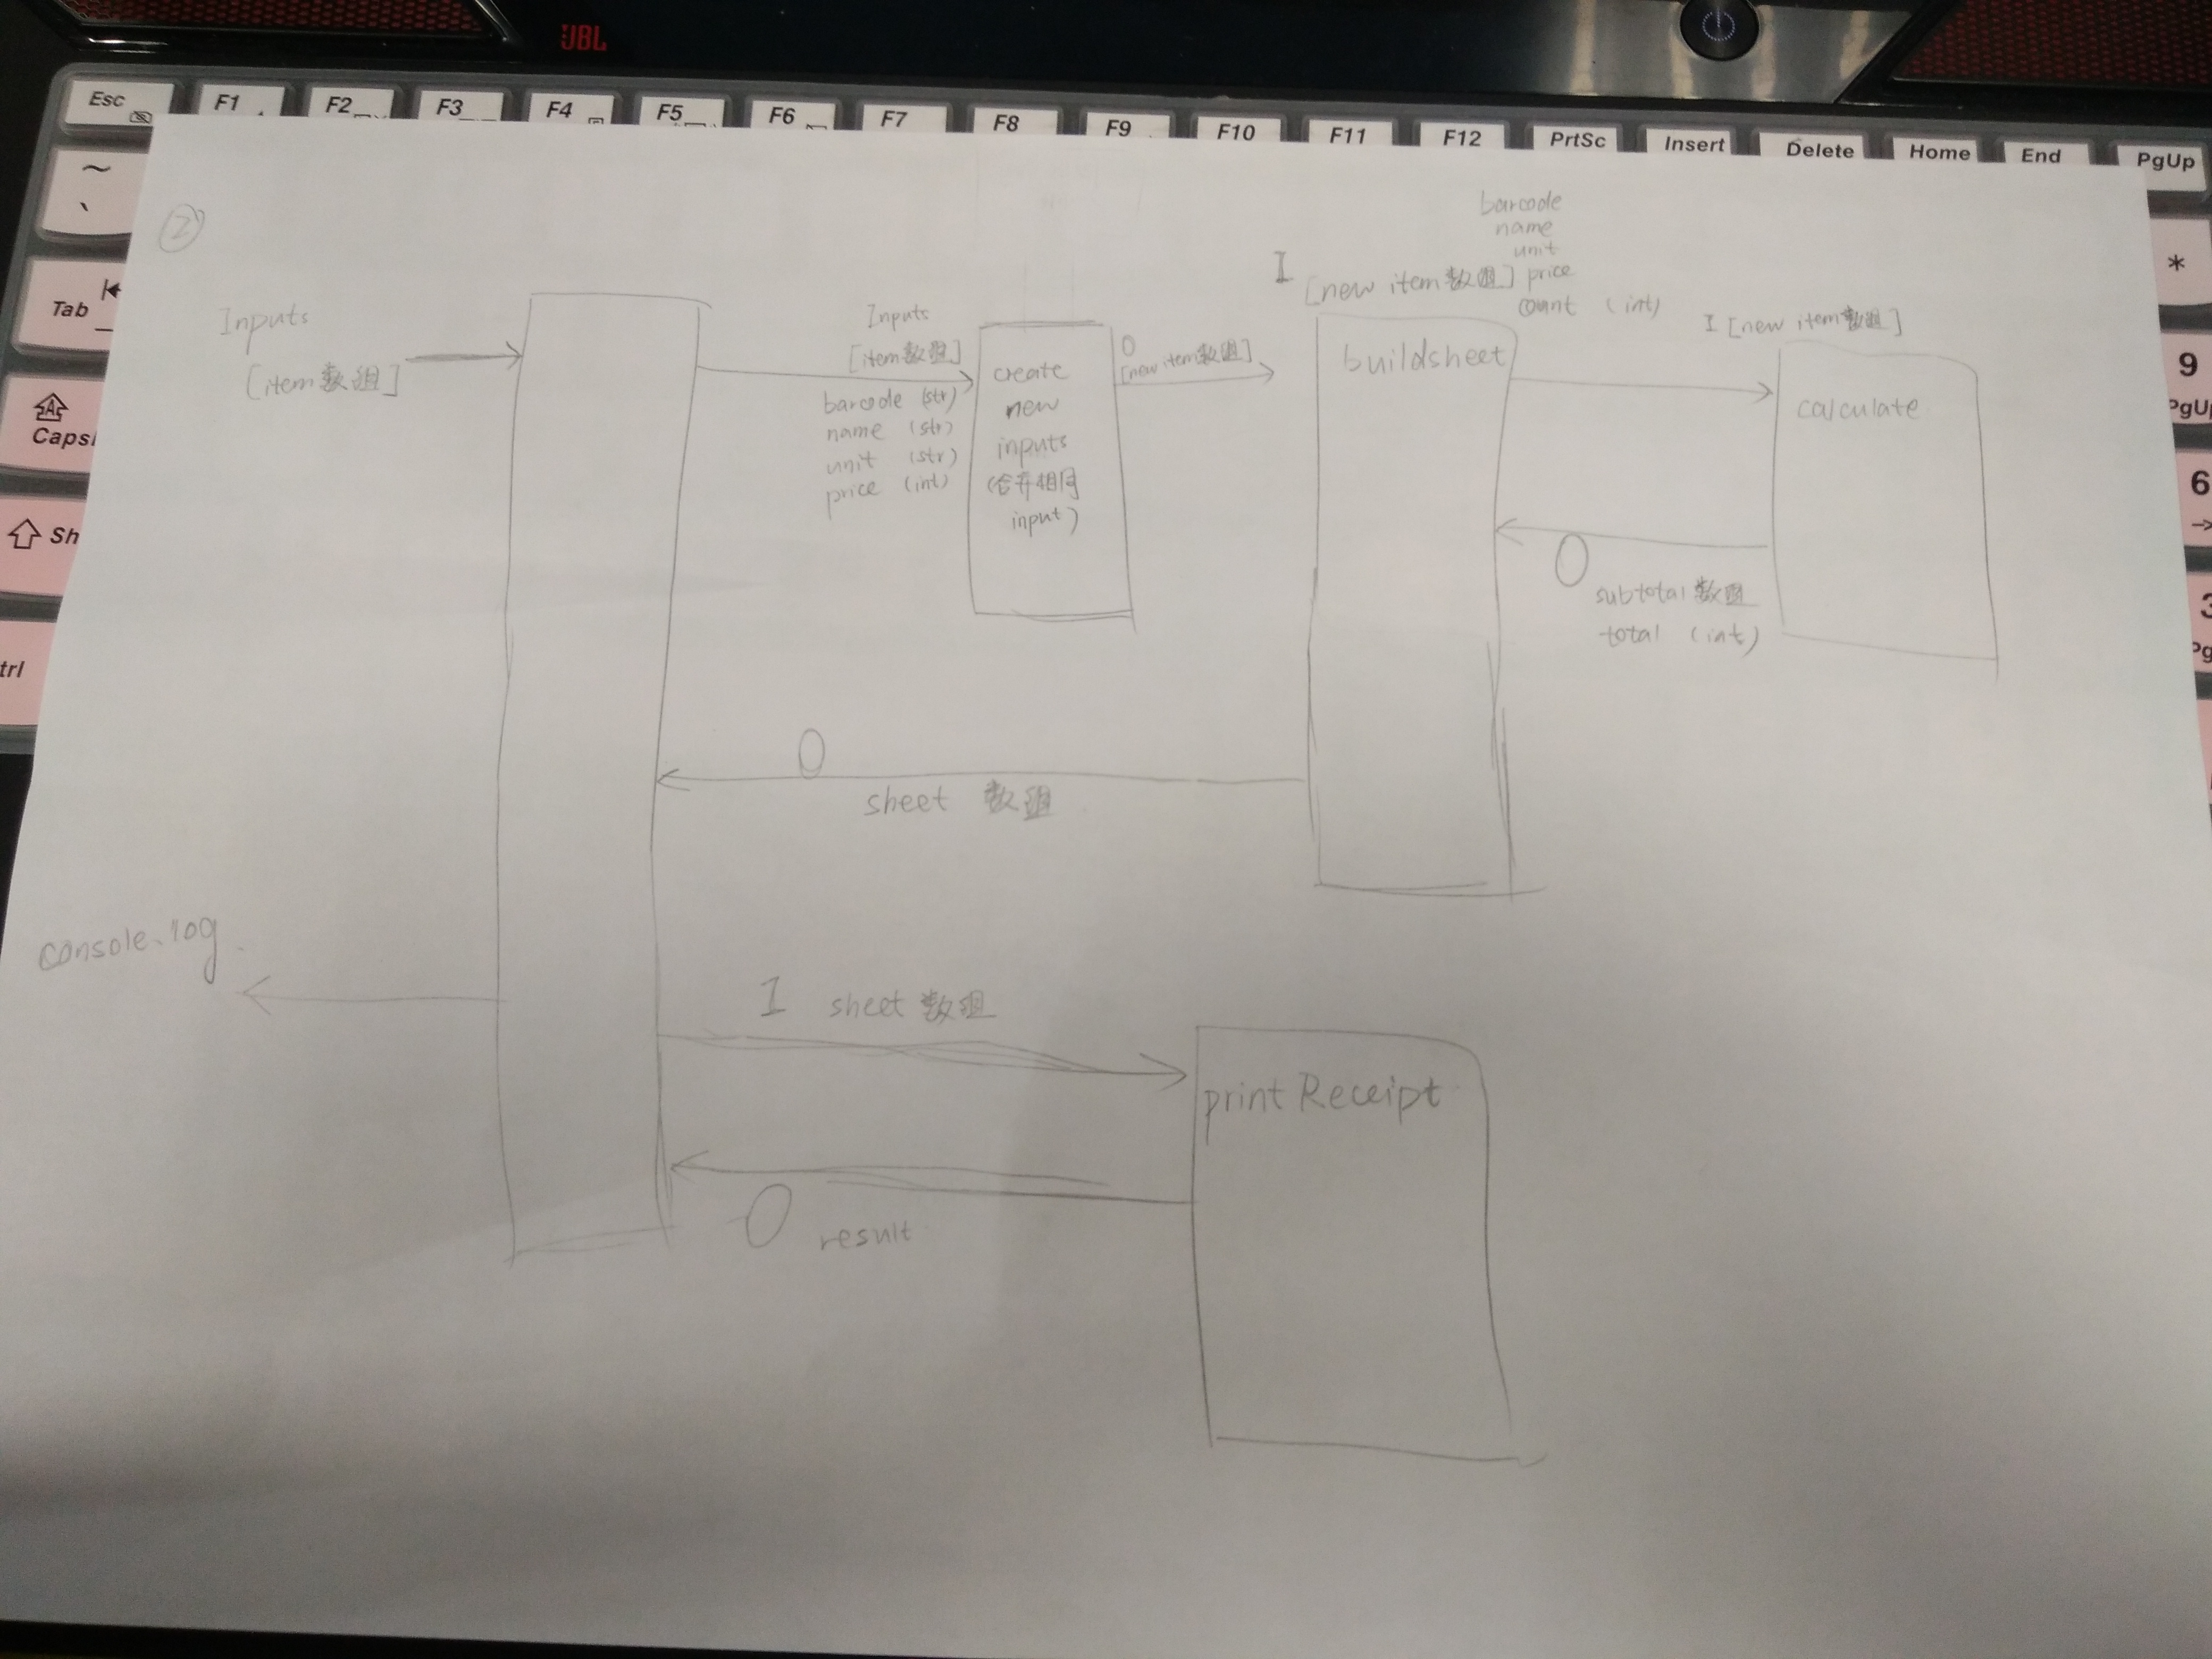 JBL
Esc
F1
F2
F3
F4
F5
F6
F7
F8
F9
F10
F11
F12
PrtSc
Insert
Delete
Home
End
PgUp
~
`
Tab
Caps
Sh
trl
*
9
PgU
6
3
Pg
②
Inputs
[item数组]
Inputs
[item数组]
barcode (str)
name (str)
unit (str)
price (int)
create
new
inputs
(合并相同
input)
O
[new item数组]
barcode
name
unit
I
[new item数组] price
count (int)
buildsheet
I [new item数组]
calculate
O
subtotal数组
total (int)
O
sheet 数组
console.log
I sheet 数组
print Receipt
O result